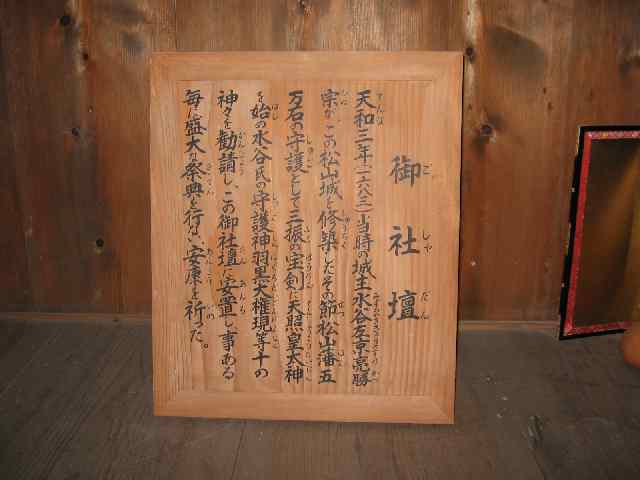 御社壇
天和三年(一六八三)当時の城主水谷左京亮勝
宗が、この松山城を修築したその節、松山藩五
万石の守護として三振の宝剣に天照皇大神
を始め水谷氏の守護神羽黒大権現等十の
神々を勧請し、この御社壇に安置し、事ある
毎に盛大な祭典を行ない、安康を祈った。